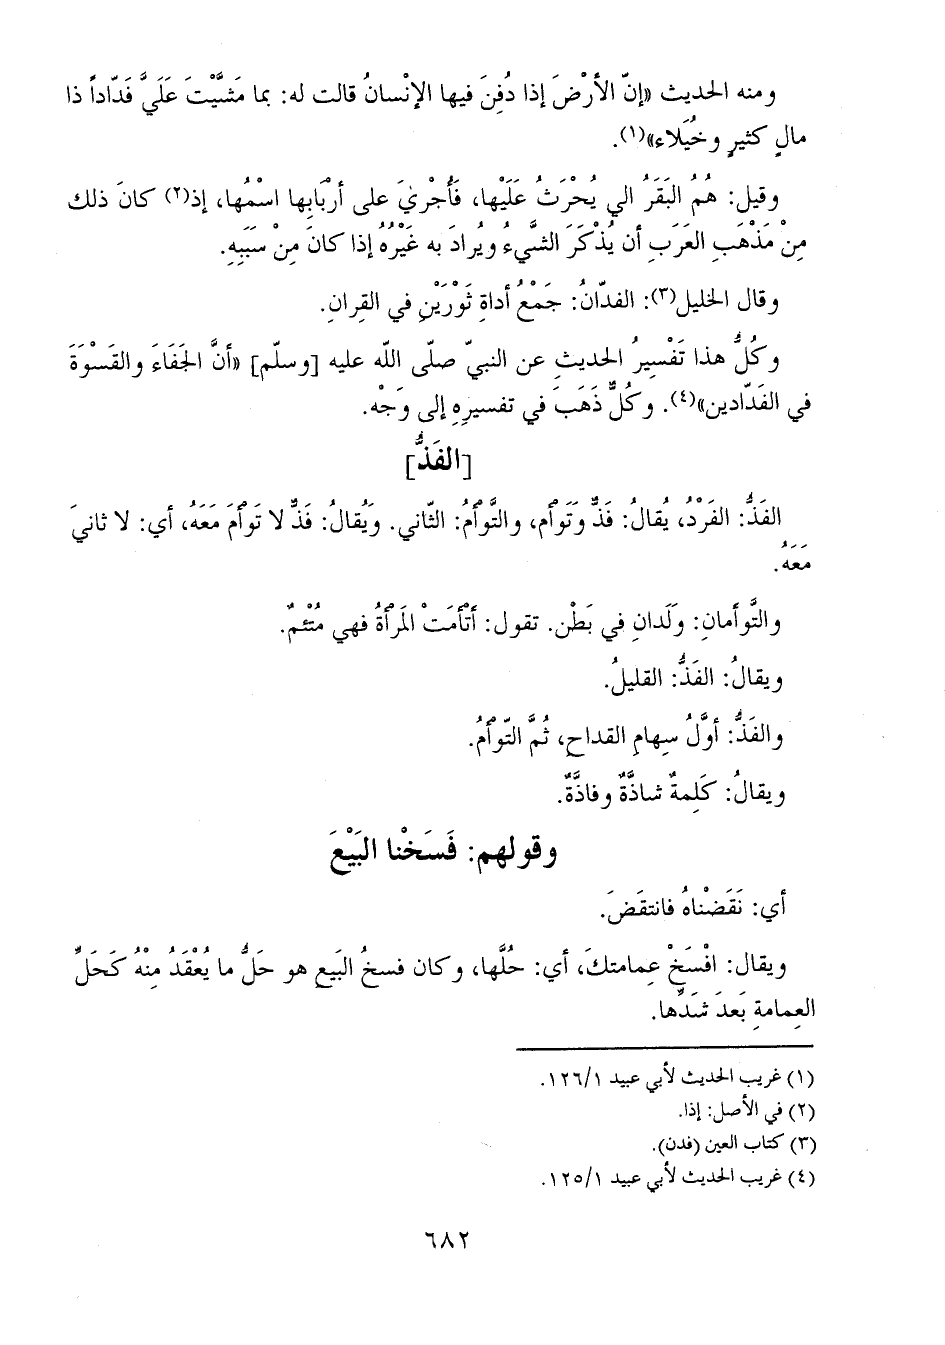 ومنه الحديث «إنّ الأرْضَ إذا دُفِنَ فيها الإنْسانُ قالت له: بما مَشَّيْتَ عَلَيَّ فَدّاداً ذا
مالٍ كثيرٍ وخُيَلاء»(١).
وقيل: هُمُ البَقَرُ الي يُحْرَثُ عَلَيْها، فَأُجْرِيَ على أرْبَابِها اسْمُها، إذ(٢) كانَ ذلك
مِنْ مَذْهَبِ العَرَبِ أن يُذْكَرَ الشَّيءُ ويُرادَ به غَيْرُهُ إذا كانَ مِنْ سَبَبِهِ.
وقال الخليل(٣): الفدّانُ: جَمْعُ أداةِ ثَوْرَيْنِ في القِرانِ.
وكُلُّ هذا تَفْسِيرُ الحديثِ عن النبيّ صلّى اللّه عليه [وسلّم] «أنَّ الجَفَاءَ والقَسْوَةَ
في الفَدّادين»(٤). وكُلٌّ ذَهَبَ في تفسيرِهِ إلى وَجْه.
[الفَذُّ]
الفَذُّ: الفَرْدُ، يُقالُ: فَذٌّ وَتَوأم، والتَّوأمُ: الثّاني. ويُقالُ: فَذٌّ لا تَوأمَ مَعَهُ، أي: لا ثانيَ
مَعَهُ.
والتَّوأمانِ: وَلَدانِ في بَطْن. تقول: أتْأمَتْ المَرْأةُ فهي مُتْئمٌ.
ويقالُ: الفَذُّ: القليلُ.
والفَذُّ: أوَّلُ سِهامِ القداحِ، ثُمَّ التّوأمُ.
ويقالُ: كَلِمةٌ شاذَّةٌ وفاذَّةٌ.
وقولهم: فَسَخْنا البَيْعَ
أي: نَقَضْناهُ فانتقَضَ.
ويقال: افْسَخْ عِمامتكَ، أي: حُلَّها، وكان فسخُ البَيعِ هو حَلُّ ما يُعْقَدُ مِنْهُ كَحَلِّ
العِمامةِ بَعدَ شَدِّها.
(١) غريب الحديث لأبي عبيد ١٢٦/١.
(٢) في الأصل: إذا.
(٣) كتاب العين (فدن).
(٤) غريب الحديث لأبي عبيد ١٢٥/١.
٦٨٢